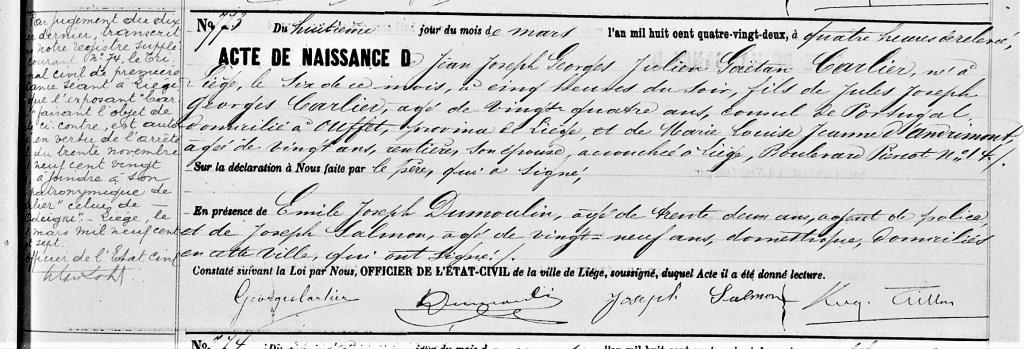 Par jugement du dix
dernier, transcrit
notre registre supplé
courant No 74, le Tri
nal civil de première
tance séant à Liège
que l'exposant Car
faisant l'objet de
ci-contre, est auto
en vertu de l'arrêté
du trente novembre
neuf cent vingt
à joindre à son
patronymique de
lier" celui de
deigné". Liège, le
mars mil neuf cent
sept.
officier de l'Etat Civil
No 773 Du huitième jour du mois de mars l'an mil huit cent quatre-vingt-deux, à quatre heures de relevée,
ACTE DE NAISSANCE D Jean Joseph Georges Julien Gaëtan Carlier, né à
Liége, le Six de ce mois, à cinq heures du soir, fils de Jules Joseph
Georges Carlier, agé de vingt-quatre ans, consul de Portugal
domicilié à Ouffet, province de Liége et de Marie Louise Jeanne d'Andrimont,
agée de vingt ans, rentière, son épouse, accouchée à Liége, Boulevard Piercot No 14.
Sur la déclaration à Nous faite par le Père, qui a signé,
En présence de Emile Joseph Dumoulin, agé de trente deux ans, agent de police,
et de Joseph Salmon, agé de vingt-neuf ans, domestique, domiciliés
en cette ville, qui ont signé.
Constaté suivant la Loi par Nous, OFFICIER DE L'ÉTAT-CIVIL de la ville de Liége, soussigné, duquel Acte il a été donné lecture.
Georges Carlier Dumoulin Joseph Salmon
No 774 l'an mil huit cent quatre-vingt-deux, à